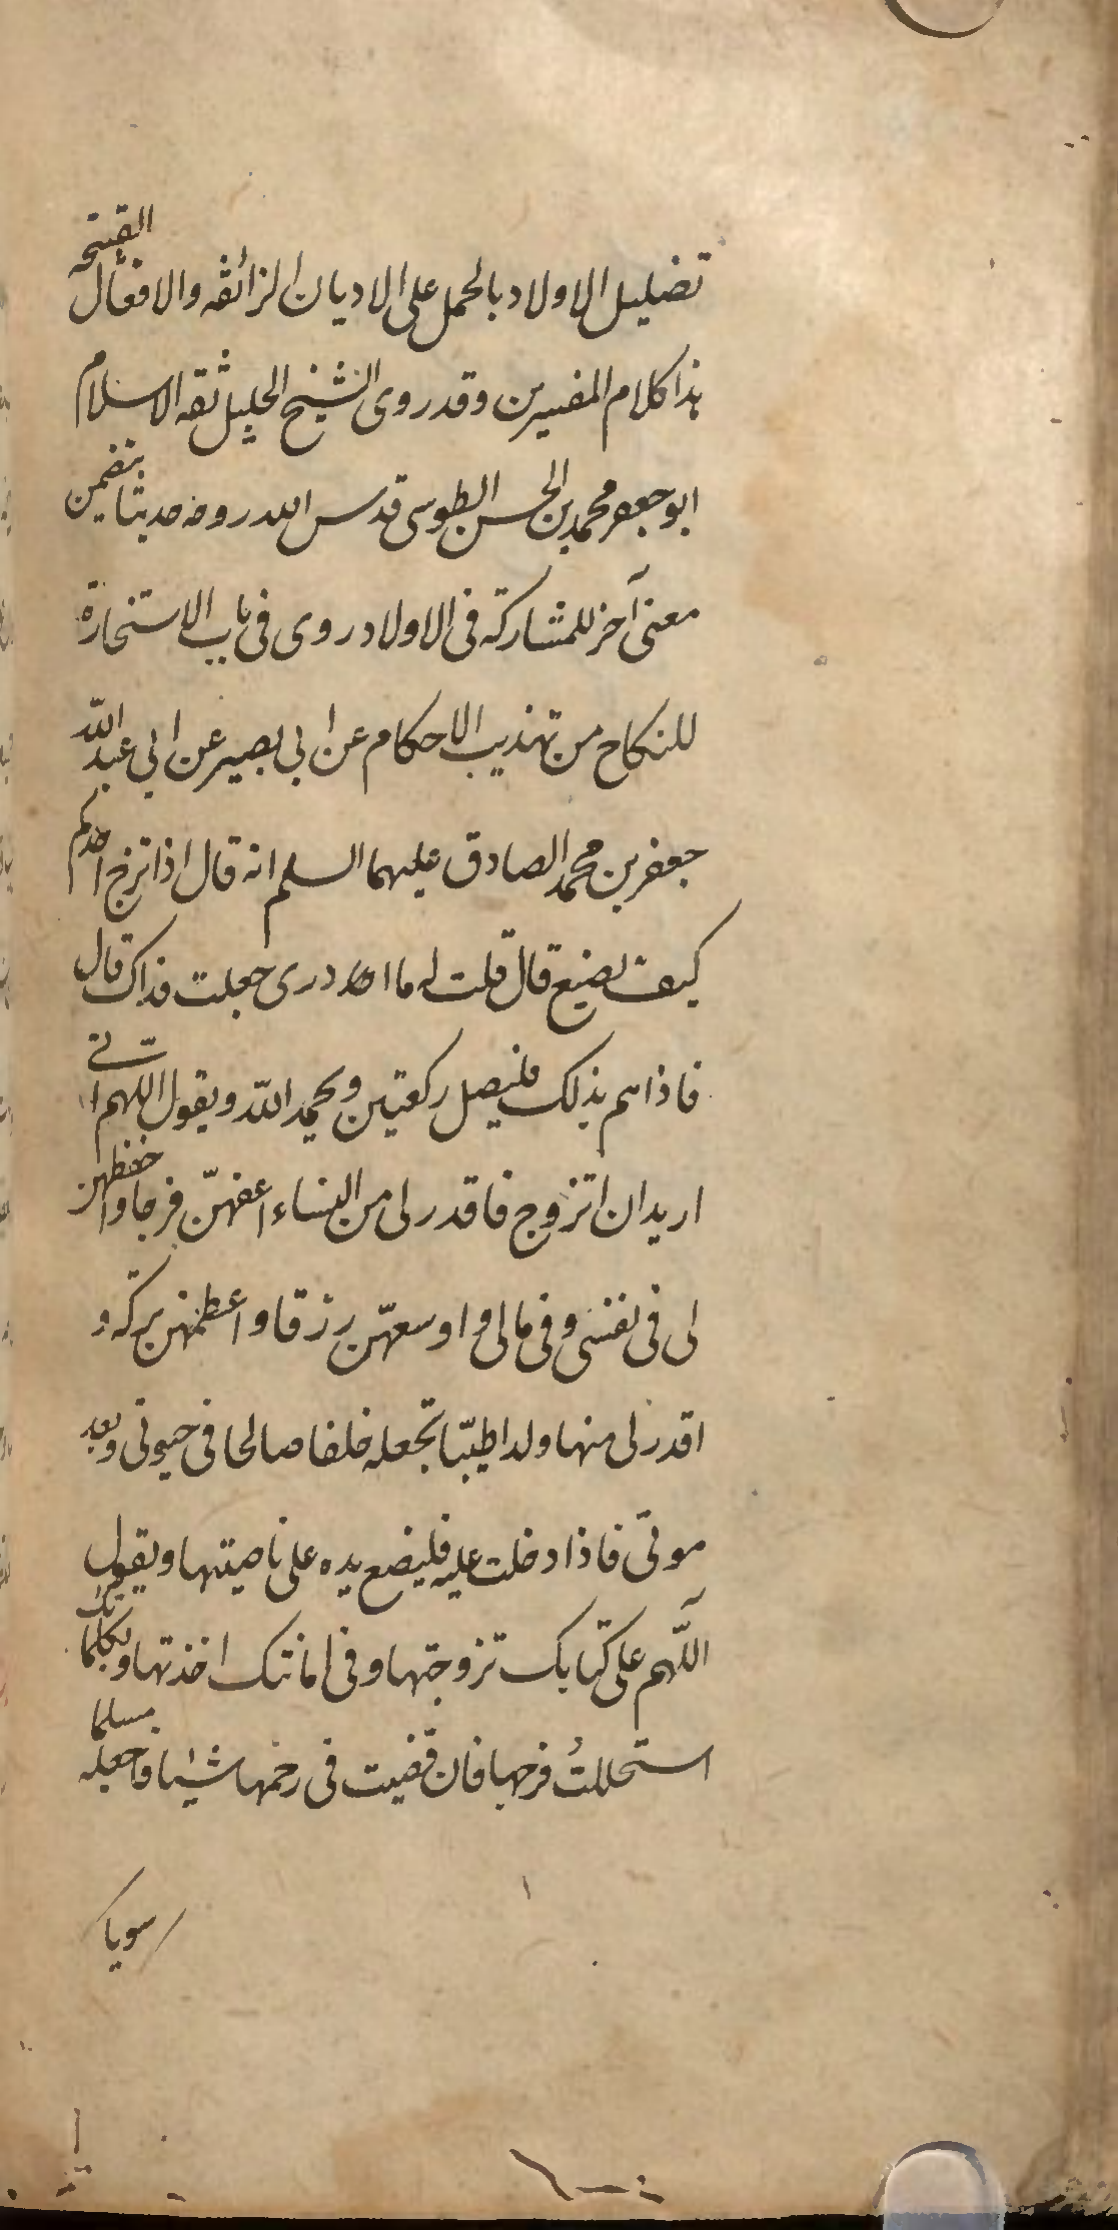 تضليل الاولاد بالحمل على الاديان الزائغة والافعال القبيحة
هذا كلام المفسرين وقد روى الشيخ الجليل ثقة الاسلام
ابو جعفر محمد بن الحسن الطوسى قدس الله روحه حديثا يتضمن
معنى آخر للمشاركة فى الاولاد روى فى باب الاستخارة
للنكاح من تهذيب الاحكام عن ابى بصير عن ابى عبد الله
جعفر بن محمد الصادق عليهما السلم انه قال اذا تزوج احدكم
كيف يصنع قال قلت له ما ادرى جعلت فداك قال
فاذا هم بذلك فليصل ركعتين ويحمد الله ويقول اللهم انى
اريد ان اتزوج فاقدر لى من النساء اعفهنّ فرجا واحفظهن
لى فى نفسى وفى مالى واوسعهنّ رزقا واعظمهن بركة و
اقدر لى منها ولدا طيّبا تجعله خلفا صالحا فى حيوتى وبعد
موتى فاذا دخلت عليه فليضع يده على ناصيتها ويقول
اللّهم على كتابك تزوجتها وفى امانتك اخذتها وبكلماتك
استحللتُ فرجها فان قضيت فى رحمها شيئا فاجعله مسلما
سويا